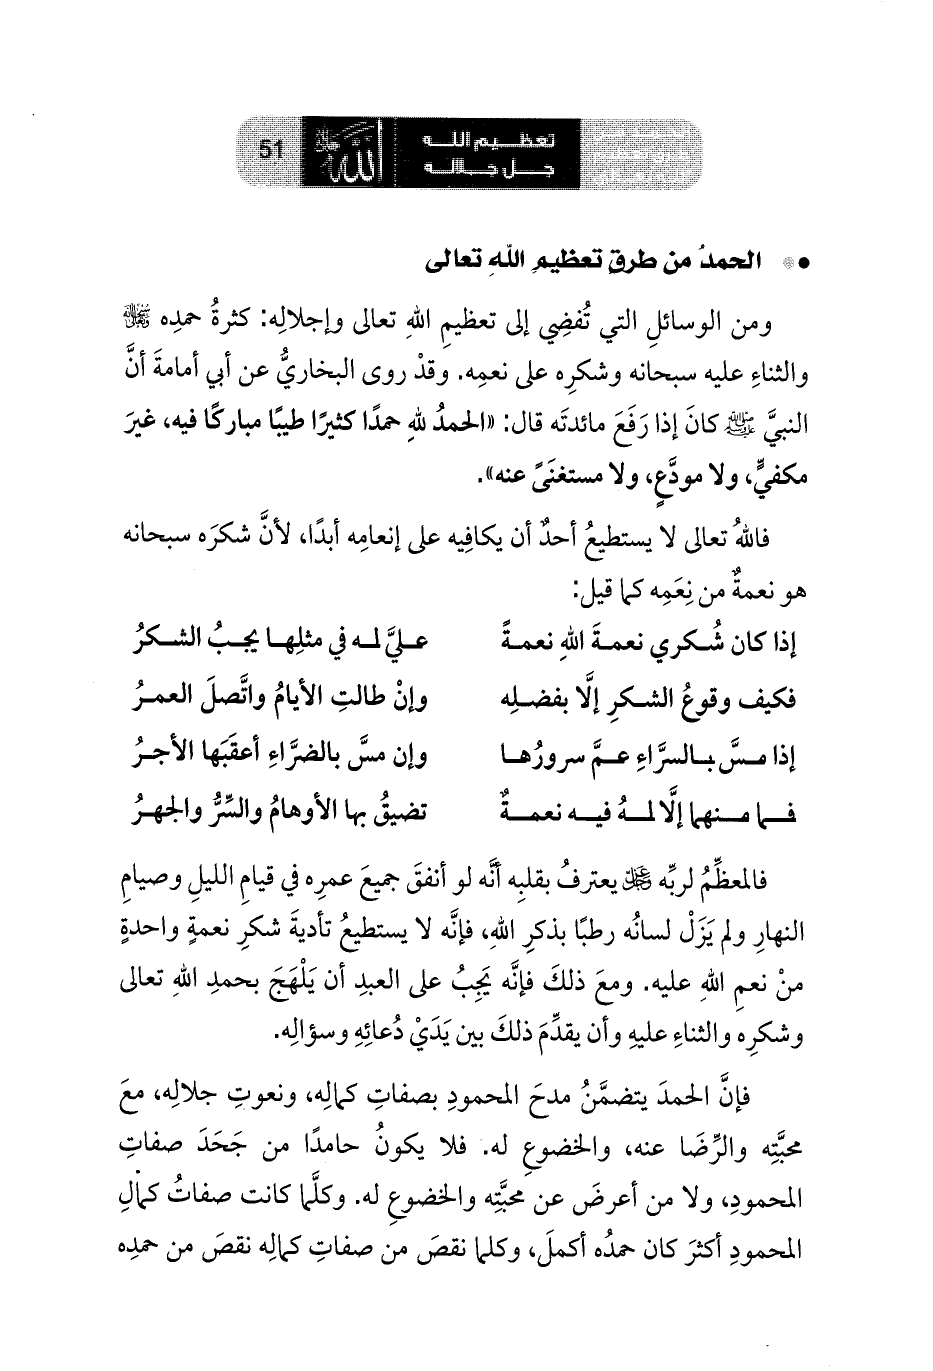 51
تعظيم الله
الله
جل جلاله
• الحمدُ من طرقِ تعظيمِ اللهِ تعالى
ومن الوسائلِ التي تُفضِي إلى تعظيمِ اللهِ تعالى وإجلالِه: كثرةُ حمدِه ﷻ
والثناءِ عليه سبحانه وشكرِه على نعمِه. وقدْ روى البخاريُّ عن أبي أمامةَ أنَّ
النبيَّ ﷺ كانَ إذا رَفَعَ مائدتَه قال: «الحمدُ للهِ حمدًا كثيرًا طيبًا مباركًا فيه، غيرَ
مكفيٍّ، ولا مودَّعٍ، ولا مستغنًى عنه».
فاللهُ تعالى لا يستطيعُ أحدٌ أن يكافِيه على إنعامِه أبدًا، لأنَّ شكرَه سبحانه
هو نعمةٌ من نِعَمِه كما قيل:
إذا كان شُكري نعمةَ اللهِ نعمةً عليَّ له في مثلِها يجبُ الشكرُ
فكيف وقوعُ الشكرِ إلَّا بفضلِه وإنْ طالتِ الأيامُ واتَّصلَ العمرُ
إذا مسَّ بالسَّراءِ عمَّ سرورُها وإن مسَّ بالضرَّاءِ أعقبَها الأجرُ
فما منهما إلَّا لهُ فيه نعمةٌ تضيقُ بها الأوهامُ والسِّرُّ والجهرُ
فالمعظِّمُ لربِّه ﷻ يعترفُ بقلبِه أنَّه لو أنفقَ جميعَ عمرِه في قيامِ الليلِ وصيامِ
النهارِ ولم يَزَلْ لسانُه رطبًا بذكرِ اللهِ، فإنَّه لا يستطيعُ تأديةَ شكرِ نعمةٍ واحدةٍ
منْ نعمِ اللهِ عليه. ومعَ ذلكَ فإنَّه يَجِبُ على العبدِ أن يَلْهَجَ بحمدِ اللهِ تعالى
وشكرِه والثناءِ عليهِ وأن يقدِّمَ ذلكَ بين يَدَيْ دُعائِهِ وسؤالِه.
فإنَّ الحمدَ يتضمَّنُ مدحَ المحمودِ بصفاتِ كمالِه، ونعوتِ جلالِه، معَ
محبَّتِه والرِّضَا عنه، والخضوعِ له. فلا يكونُ حامدًا من جَحَدَ صفاتِ
المحمودِ، ولا من أعرضَ عن محبَّتِه والخضوعِ له. وكلَّما كانت صفاتُ كمالِ
المحمودِ أكثرَ كان حمدُه أكملَ، وكلما نقصَ من صفاتِ كمالِه نقصَ من حمدِه